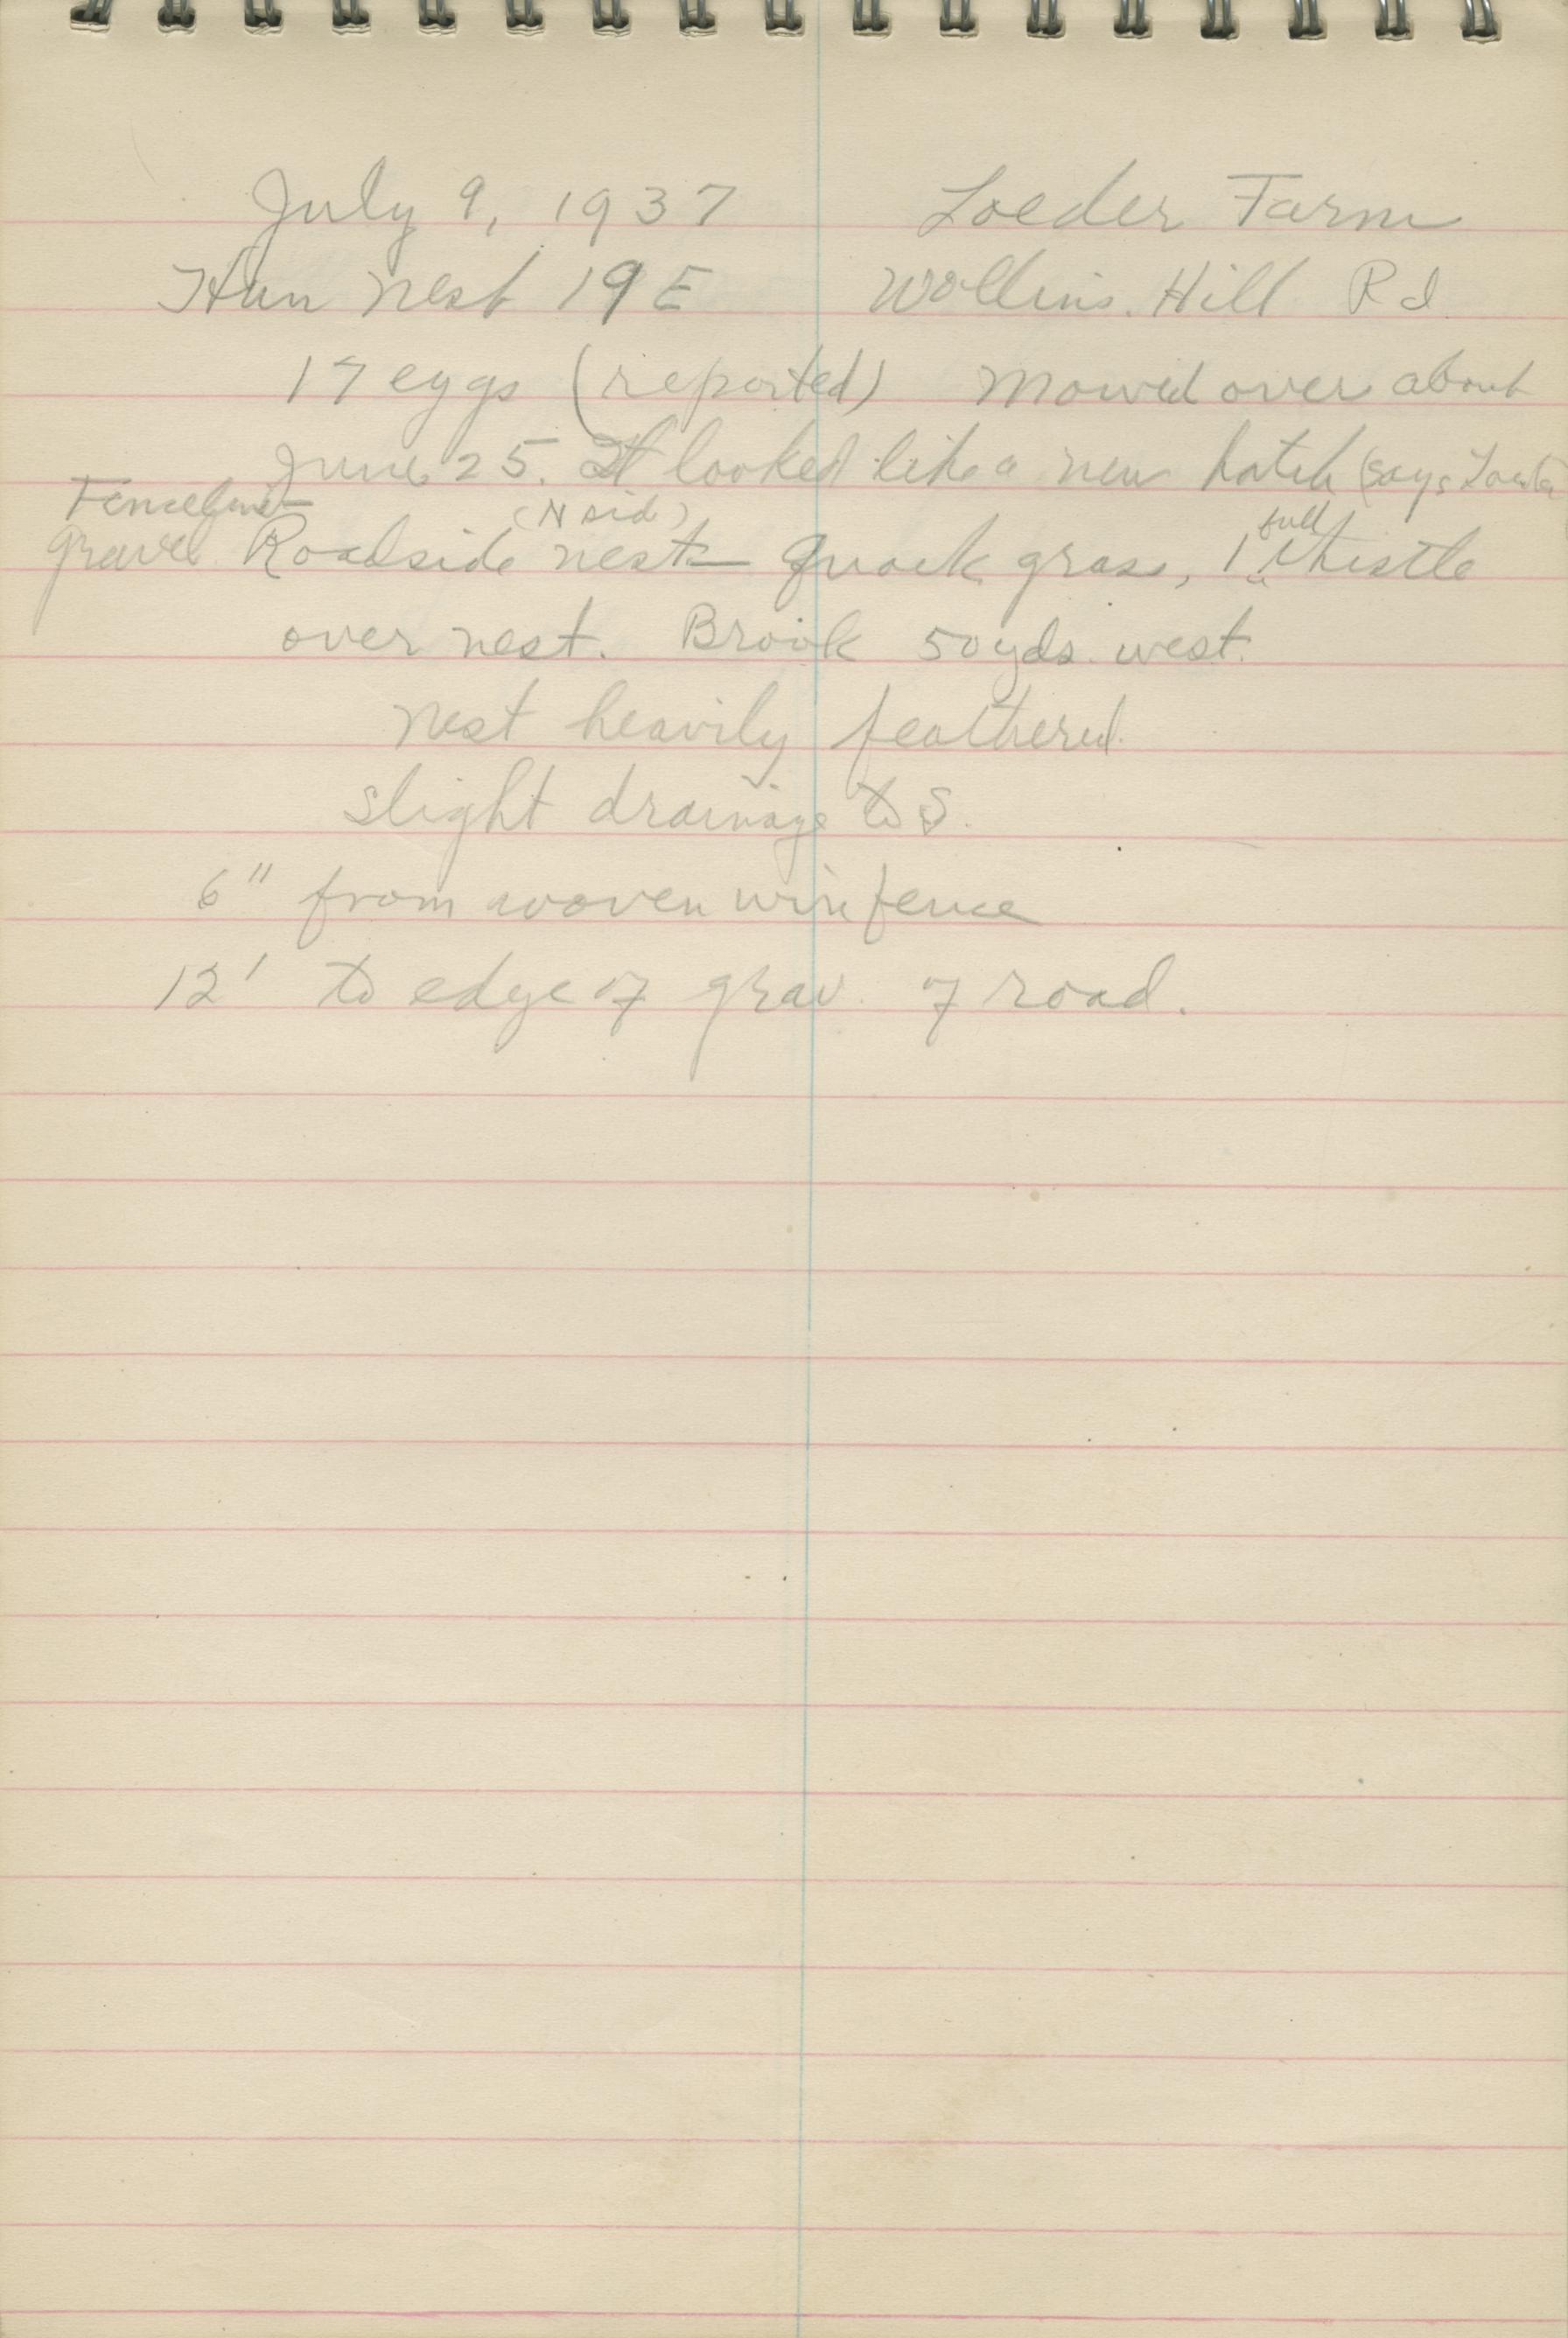 July 9, 1937 Loeder Farm
Hun nest 19E Wollins Hill Rd
17 eggs (reported) Mowed over about
June 25. It looked like a new hatch (says
Fenceline (N side) full
gravel Roadside nest quack grass, 1 thistle
over nest. Brook 50 yds. west.
Nest heavily feathered.
slight drainage to S.
6" from woven wire fence
12' to edge of grav. of road.